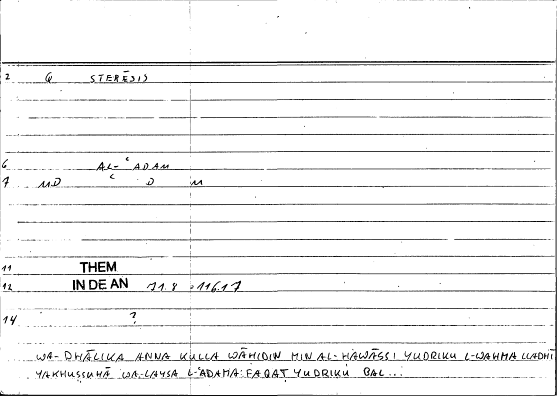 2 G STERĒSIS
6 AL-ʿADAM
7 MD ʿ D M
11 THEM
12 IN DE AN 71.8 = 116.17
14 ?
WA-DHĀLIKA ANNA KULLA WĀHIDIN MIN AL-HAWĀSSI YUDRIKU L-WAHMA LLADHĪ
YAKHUSSUHĀ WA-LAYSA L-ʿADAMA FAQAT YUDRIKU BAL...